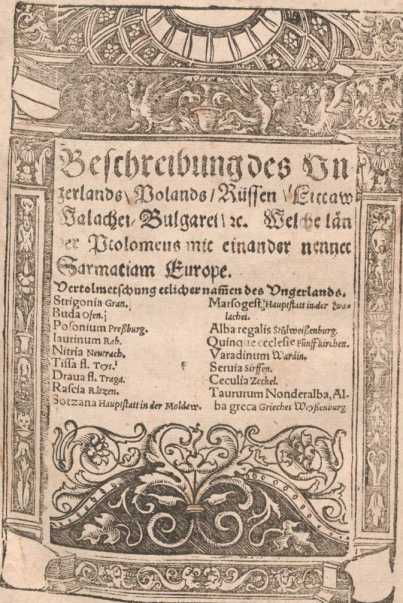 Beschreibung des Vn
gerlands / Polands / Rüssen / Littaw
Walachei / Bulgarei / ꝛc. Welche län
der Ptolomeus mit einander nennet
Sarmatiam Europe.
Vertolmetschung etlicher namen des Vngerlands.
Strigonia Gran.
Buda Ofen.
Posonium Preßburg.
Iaurinum Rab.
Nitria Neutrach.
Tissa fl. Teys.
Draua fl. Traga.
Rascia Rätzen.
Sotzana Hauptstatt in der Moldaw.
Marsogest Hauptstatt in der
lachei.
Alba regalis Stůlweißenburg.
Quinque ecclesie Fünffkirchen.
Varadinum Wardin.
Seruia Sürffen.
Ceculia Zeckel.
Taururum Nonderalba, Al-
ba greca Griechs Weyßenburg